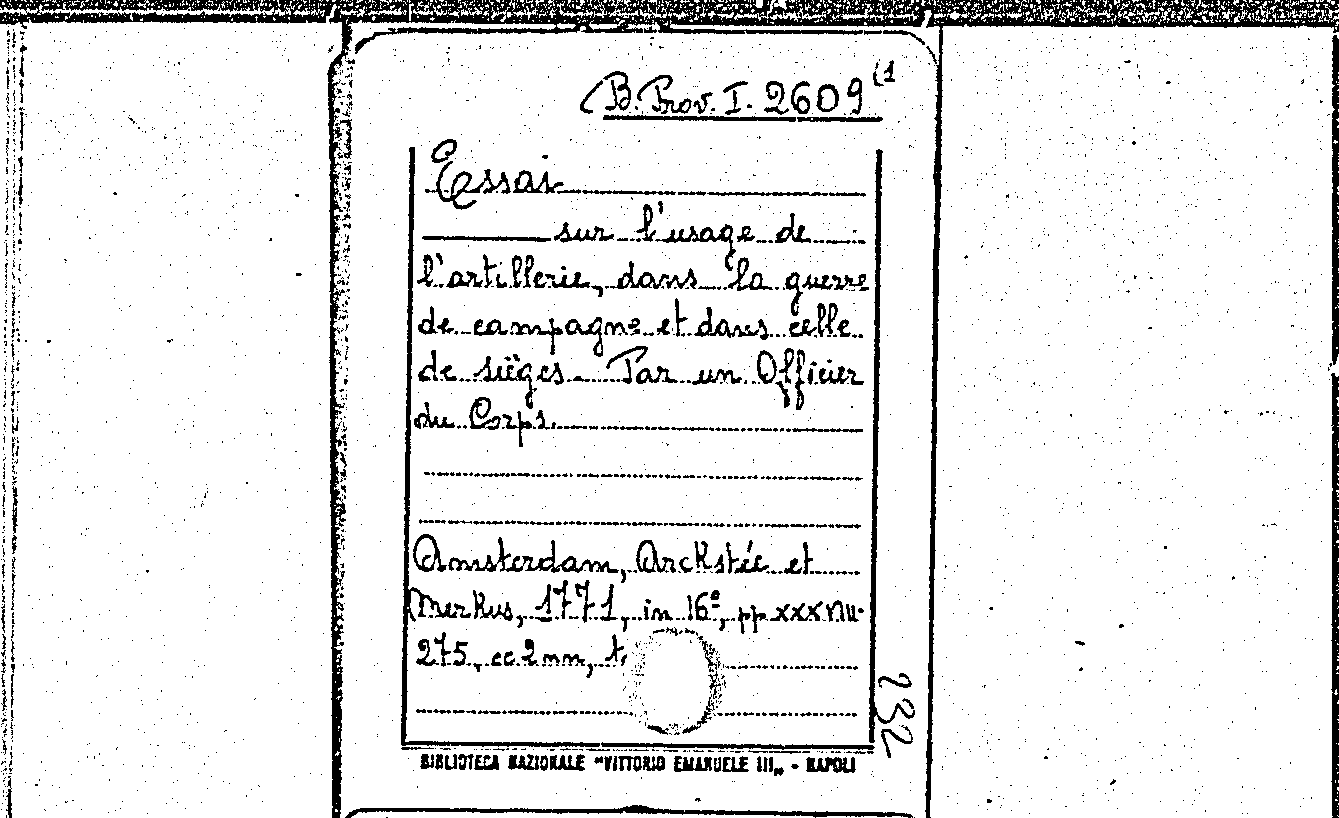 B. Prov. I. 2609 (1
Essai
sur l'usage de
l'artillerie, dans la guerre
de campagne et dans celle
de sièges. Par un Officier
du Corps.
Amsterdam, Arckstée et
Merkus, 1771, in 16º, pp
275, cc 2 nn, t.
232
BIBLIOTECA NAZIONALE "VITTORIO EMANUELE III„ - NAPOLI